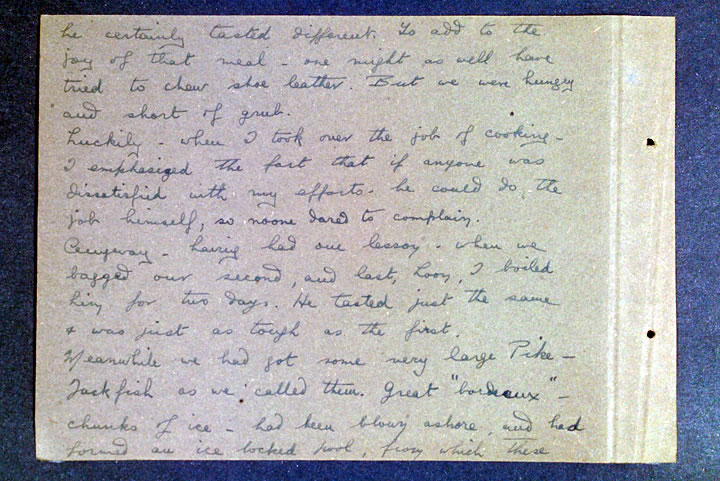 he certainly tasted different. To add to the
joy of that meal - one might as well have
tried to chew shoe leather. But we were hungry
and short of grub.
Luckily - when I took over the job of cooking -
I emphasized the fact that if anyone was
dissatisfied with my efforts - he could do the
job himself, so noone dared to complain.
Anyway - having had one lesson - when we
bagged our second, and last, Loon, I boiled
him for two days. He tasted just the same
& was just as tough as the first.
Meanwhile we had got some very large Pike -
Jackfish as we called them. Great "bordeaux" -
chunks of ice - had been blown ashore, and had
formed an ice locked pool, from which these